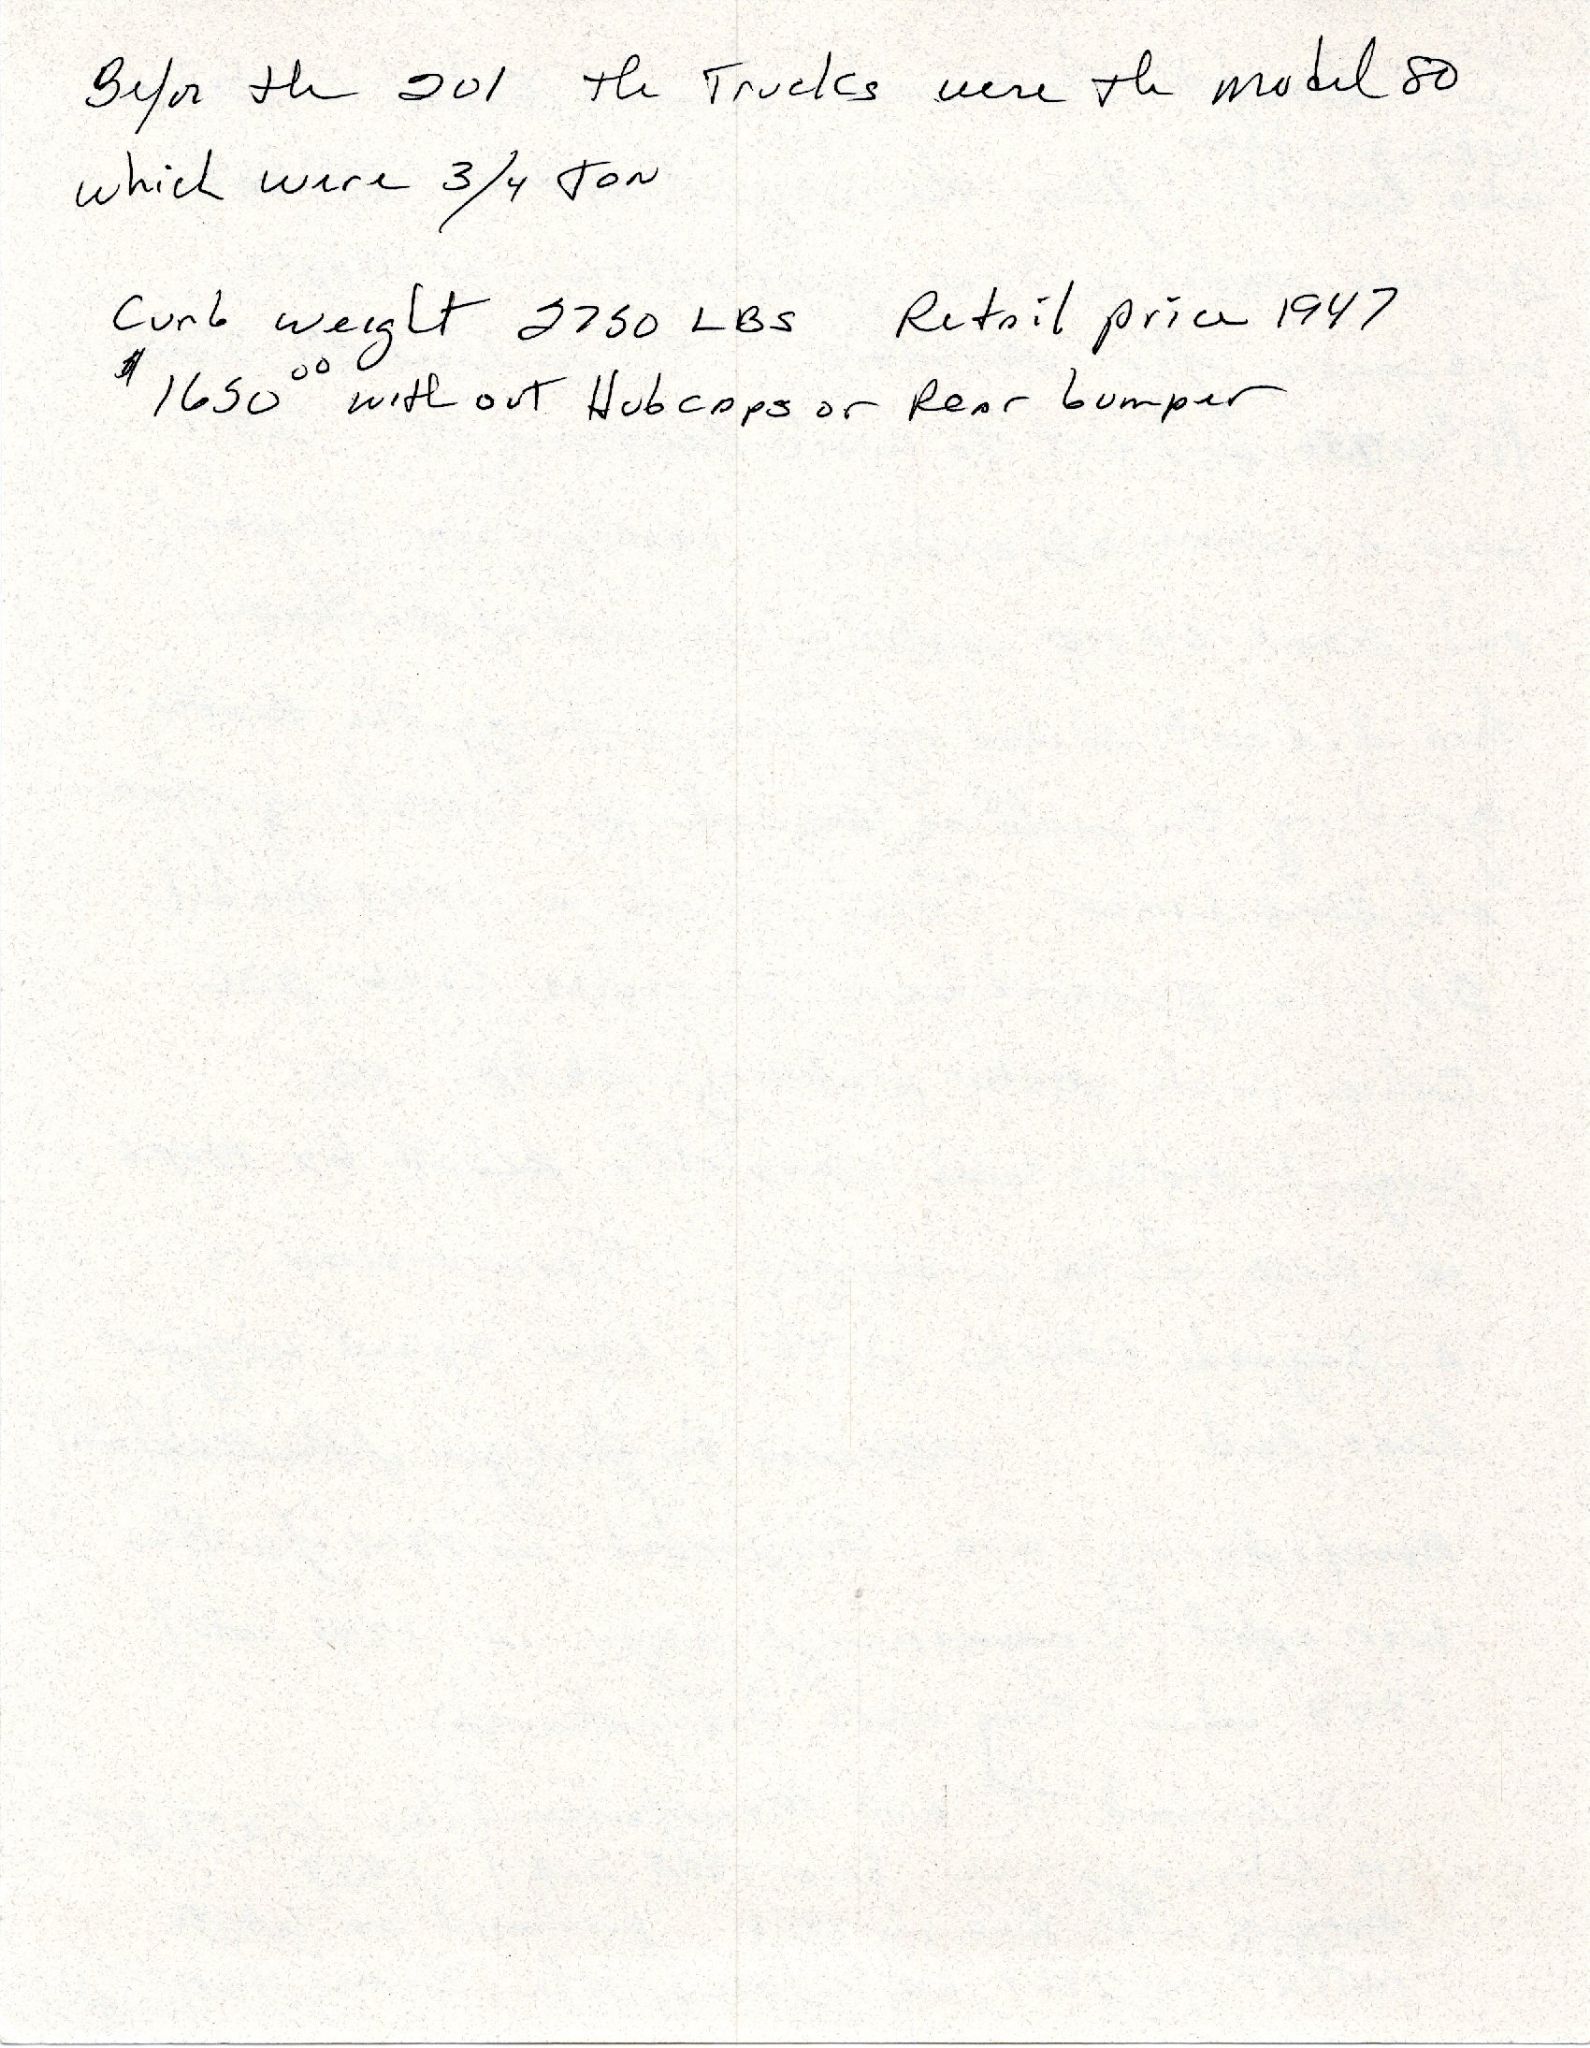 Befor the 201 the Trucks were the model 80
which were 3/4 Ton
Curb weight 2750 LBS Retail price 1947
$1650⁰⁰ without Hubcaps or Rear bumper